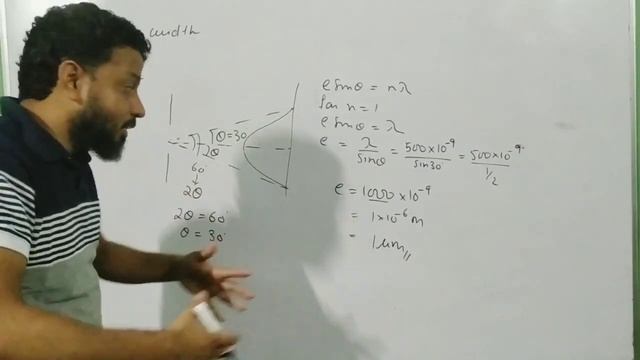 width
θ=30
2θ
60°
2θ
2θ = 60°
θ = 30°
e sinθ = nλ
for n = 1
e sinθ = λ
e = λ/sinθ = 500×10⁻⁹/sin30° = 500×10⁻⁹/½
e = 1000×10⁻⁹
= 1×10⁻⁶m
= 1μm//